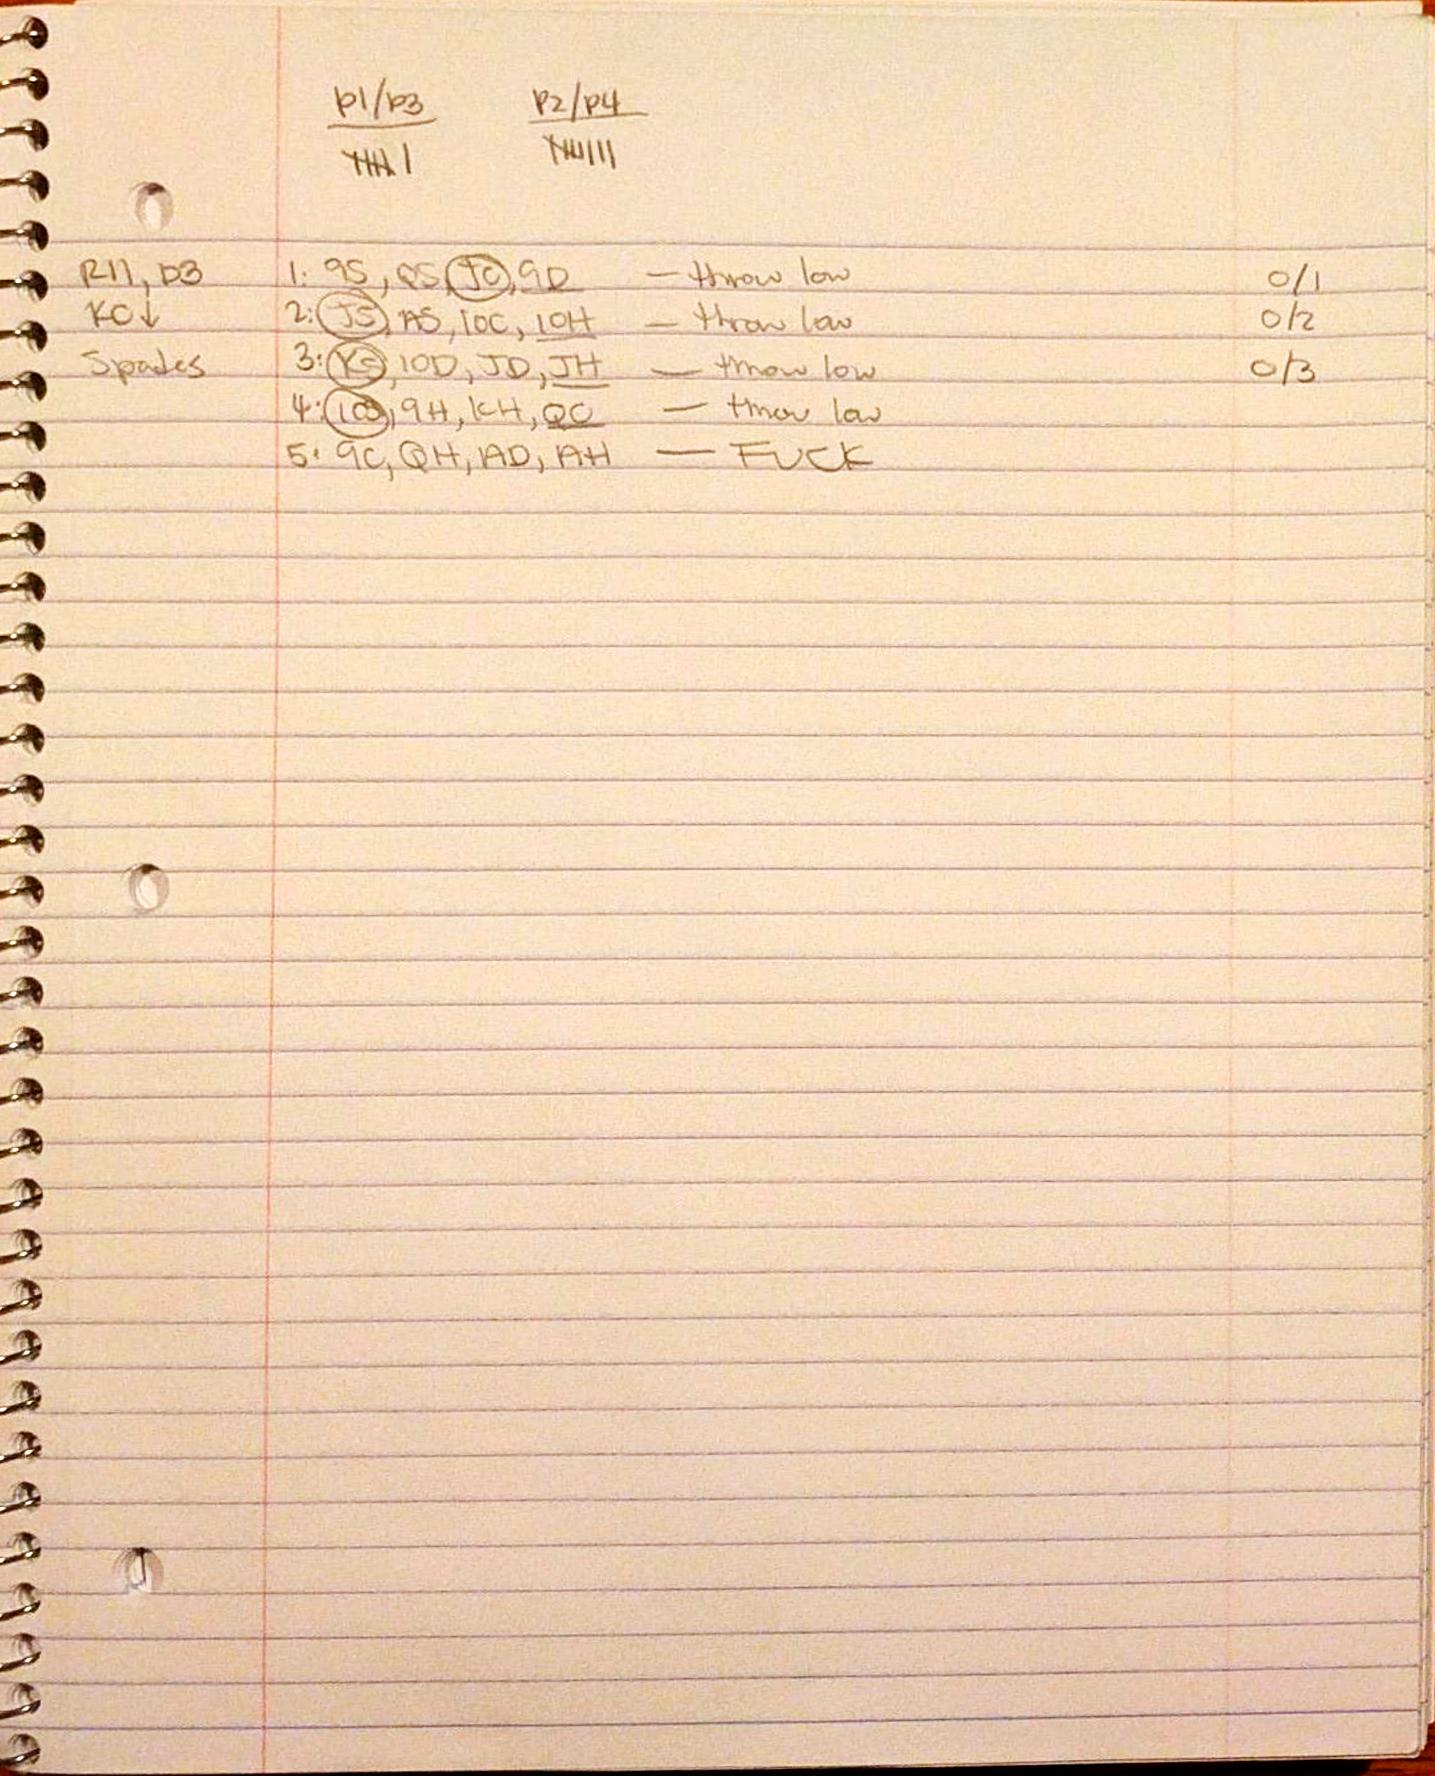 p1/p3 P2/P4
R11, p3 1: 9S, QS, JC, 9D — throw low 0/1
KC↓ 2: JS, AS, 10C, 10H — throw low 0/2
Spades 3: KS, 10D, JD, JH — throw low 0/3
4: 10S, 9H, KH, QC — throw low
5: 9C, QH, AD, AH — FUCK